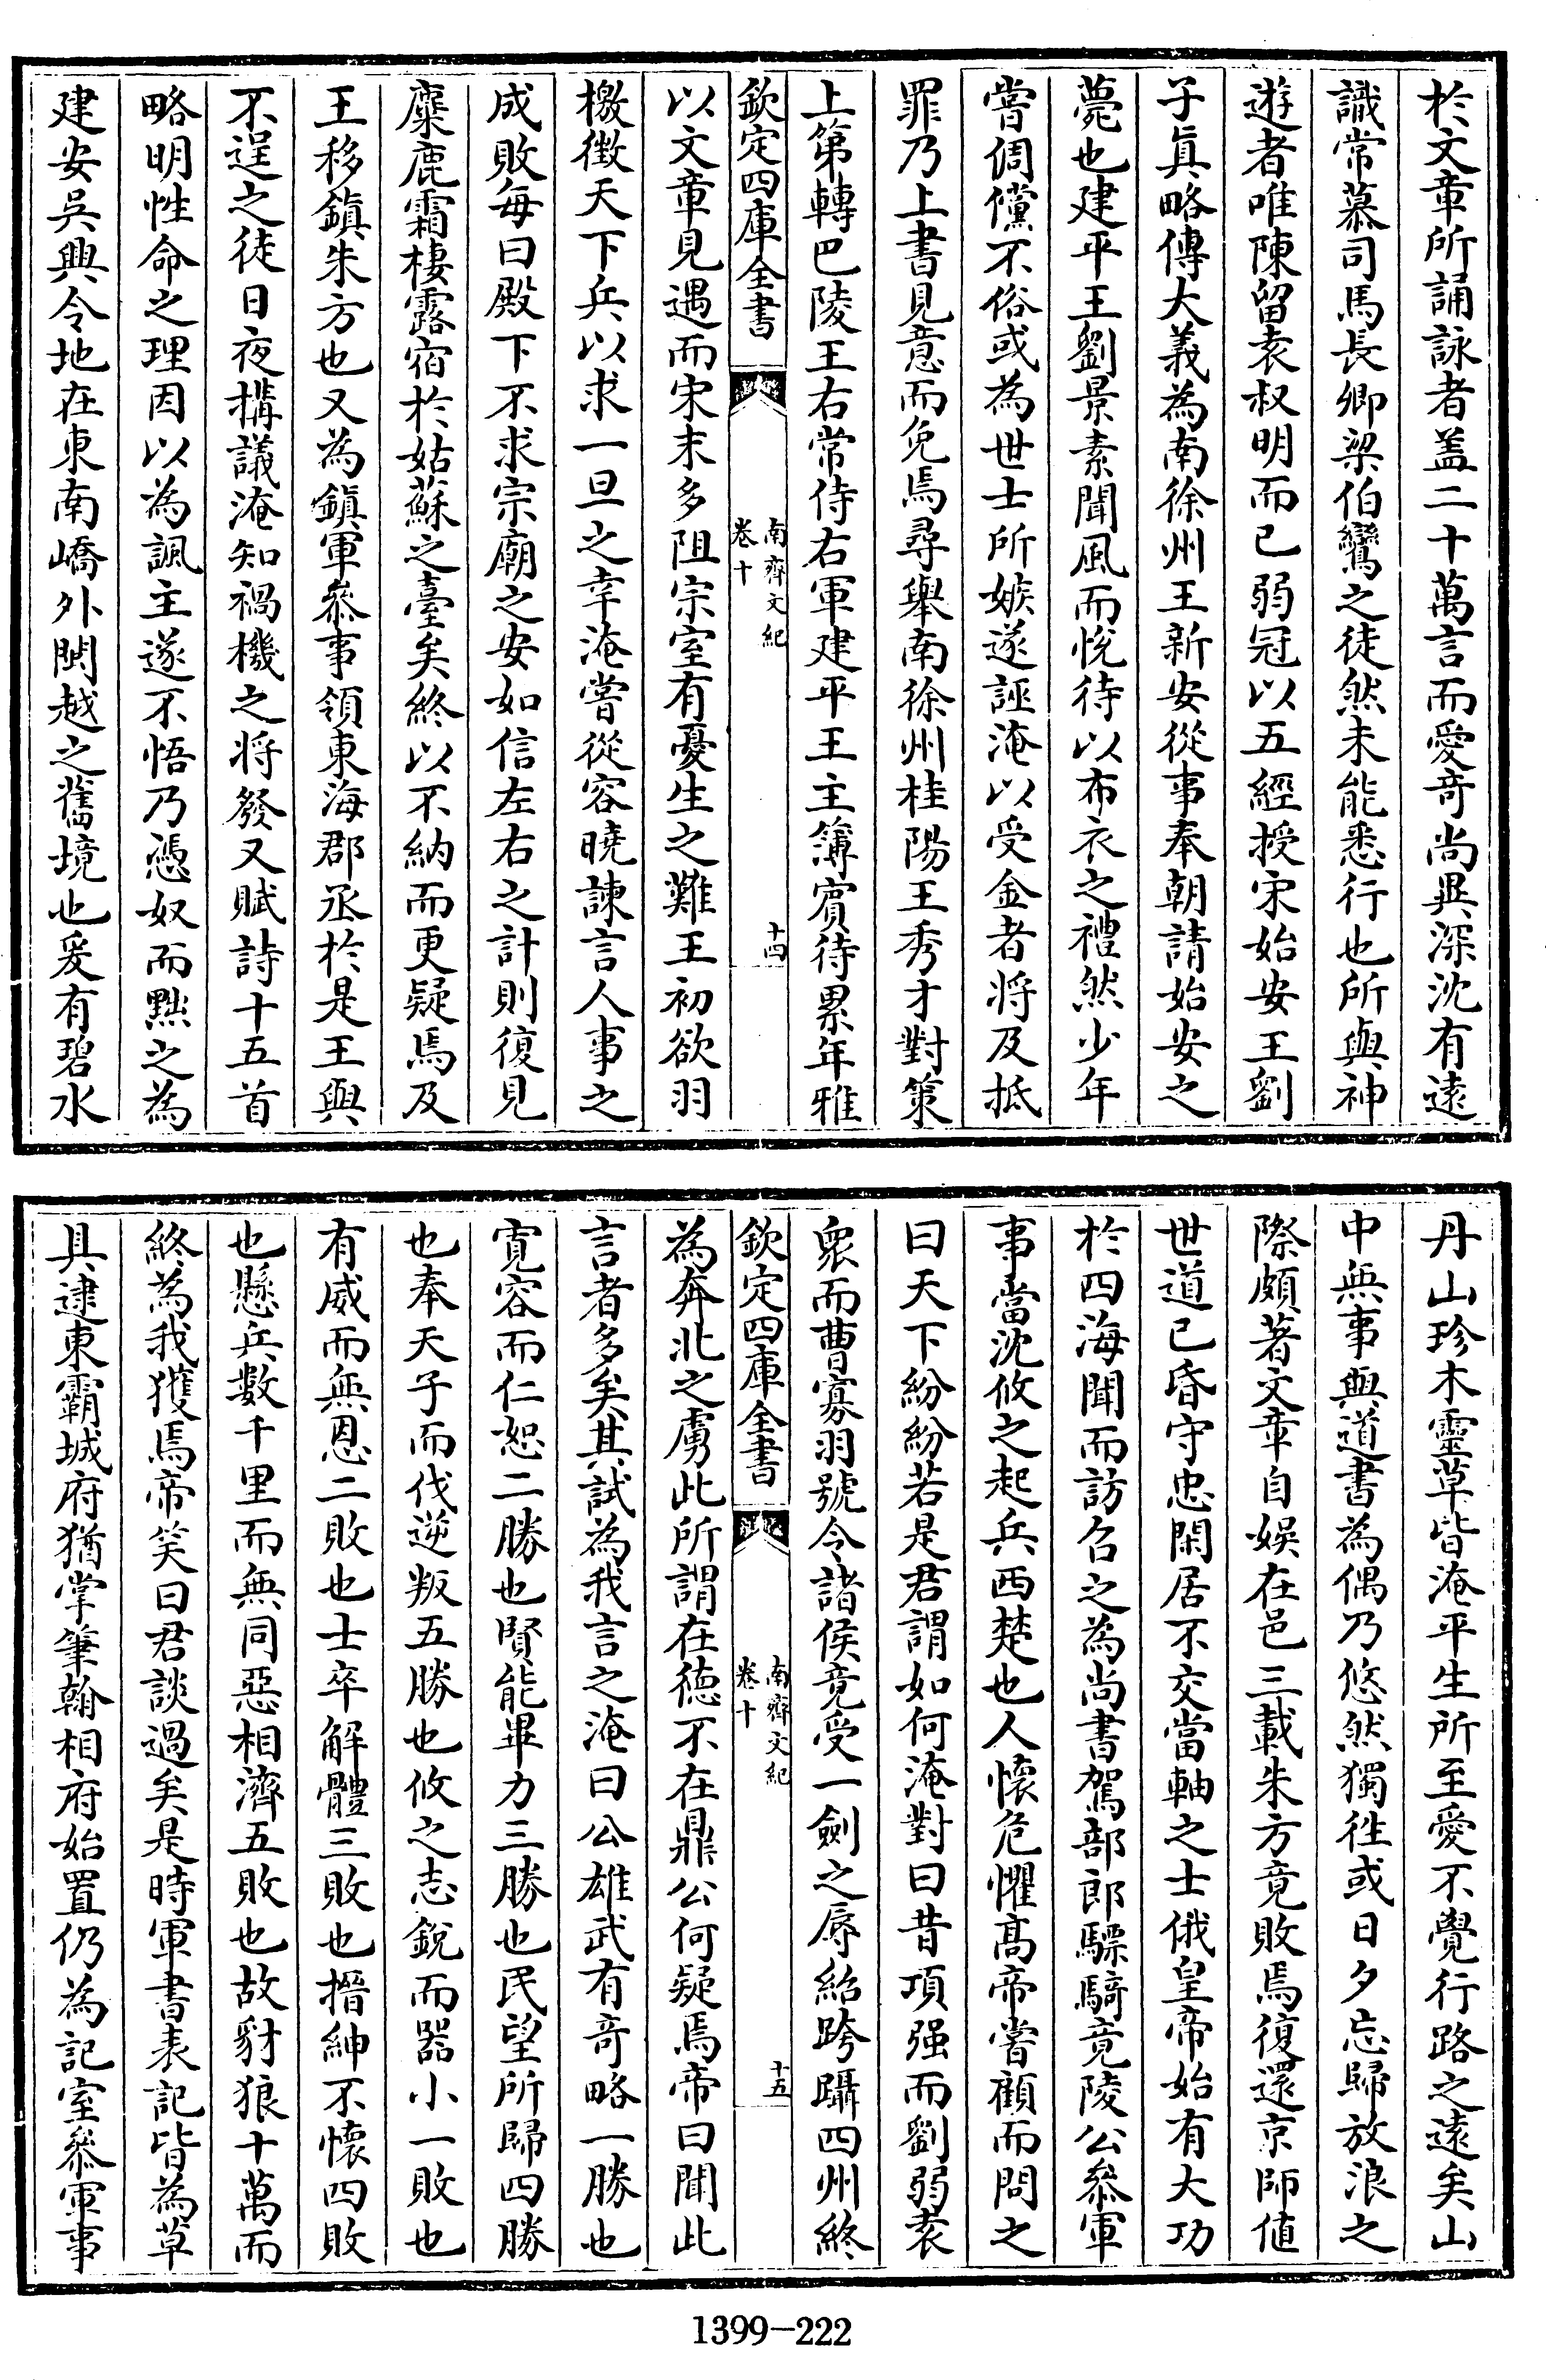 於文章所誦詠者盖二十萬言而愛奇尚異深沈有逺
識常慕司馬長卿梁伯鸞之徒然未能悉行也所與神
遊者唯陳留袁叔明而已弱冠以五經授宋始安王劉
子真略傳大義為南徐州王新安從事奉朝請始安之
薨也建平王劉景素聞風而悅待以布衣之禮然少年
嘗倜儻不俗或為世士所嫉遂誣淹以受金者将及抵
罪乃上書見意而免焉尋舉南徐州桂陽王秀才對策
上第轉巴陵王右常侍右軍建平王主簿賓待累年雅
欽定四庫全書
南齊文紀
卷十
十四
以文章見遇而宋末多阻宗室有憂生之難王初欲羽
檄徴天下兵以求一旦之幸淹嘗從容曉諫言人事之
成敗每曰殿下不求宗廟之安如信左右之計則復見
麋鹿霜棲露宿於姑蘇之臺矣終以不納而更疑焉及
王移鎮朱方也又為鎮軍叅事領東海郡丞於是王與
不逞之徒日夜構議淹知禍機之将發又賦詩十五首
略明性命之理因以為諷主遂不悟乃憑奴而黜之為
建安吳興令地在東南嶠外閩越之舊境也爰有碧水
丹山珍木靈草皆淹平生所至愛不覺行路之遠矣山
中無事與道書為偶乃悠然獨徃或日夕忘歸放浪之
際頗著文章自娱在邑三載朱方竟敗焉復還京師値
世道已昏守忠閑居不交當軸之士俄皇帝始有大功
於四海聞而訪召之為尚書駕部郎驃騎竟陵公叅軍
事當沈攸之起兵西楚也人懷危懼高帝嘗顧而問之
曰天下紛紛若是君謂如何淹對曰昔項强而劉弱袁
衆而曹寡羽號令諸侯竟受一劍之辱紹跨躡四州終
欽定四庫全書
南齊文紀
卷十
十五
為奔北之虜此所謂在徳不在鼎公何疑焉帝曰聞此
言者多矣其試為我言之淹曰公雄武有奇略一勝也
寛容而仁恕二勝也賢能畢力三勝也民望所歸四勝
也奉天子而伐逆叛五勝也攸之志銳而器小一敗也
有威而無恩二敗也士卒解體三敗也搢紳不懷四敗
也懸兵數千里而無同惡相濟五敗也故豺狼十萬而
終為我獲焉帝笑曰君談過矣是時軍書表記皆為草
具逮東霸城府猶掌筆翰相府始置仍為記室叅軍事
1399-222